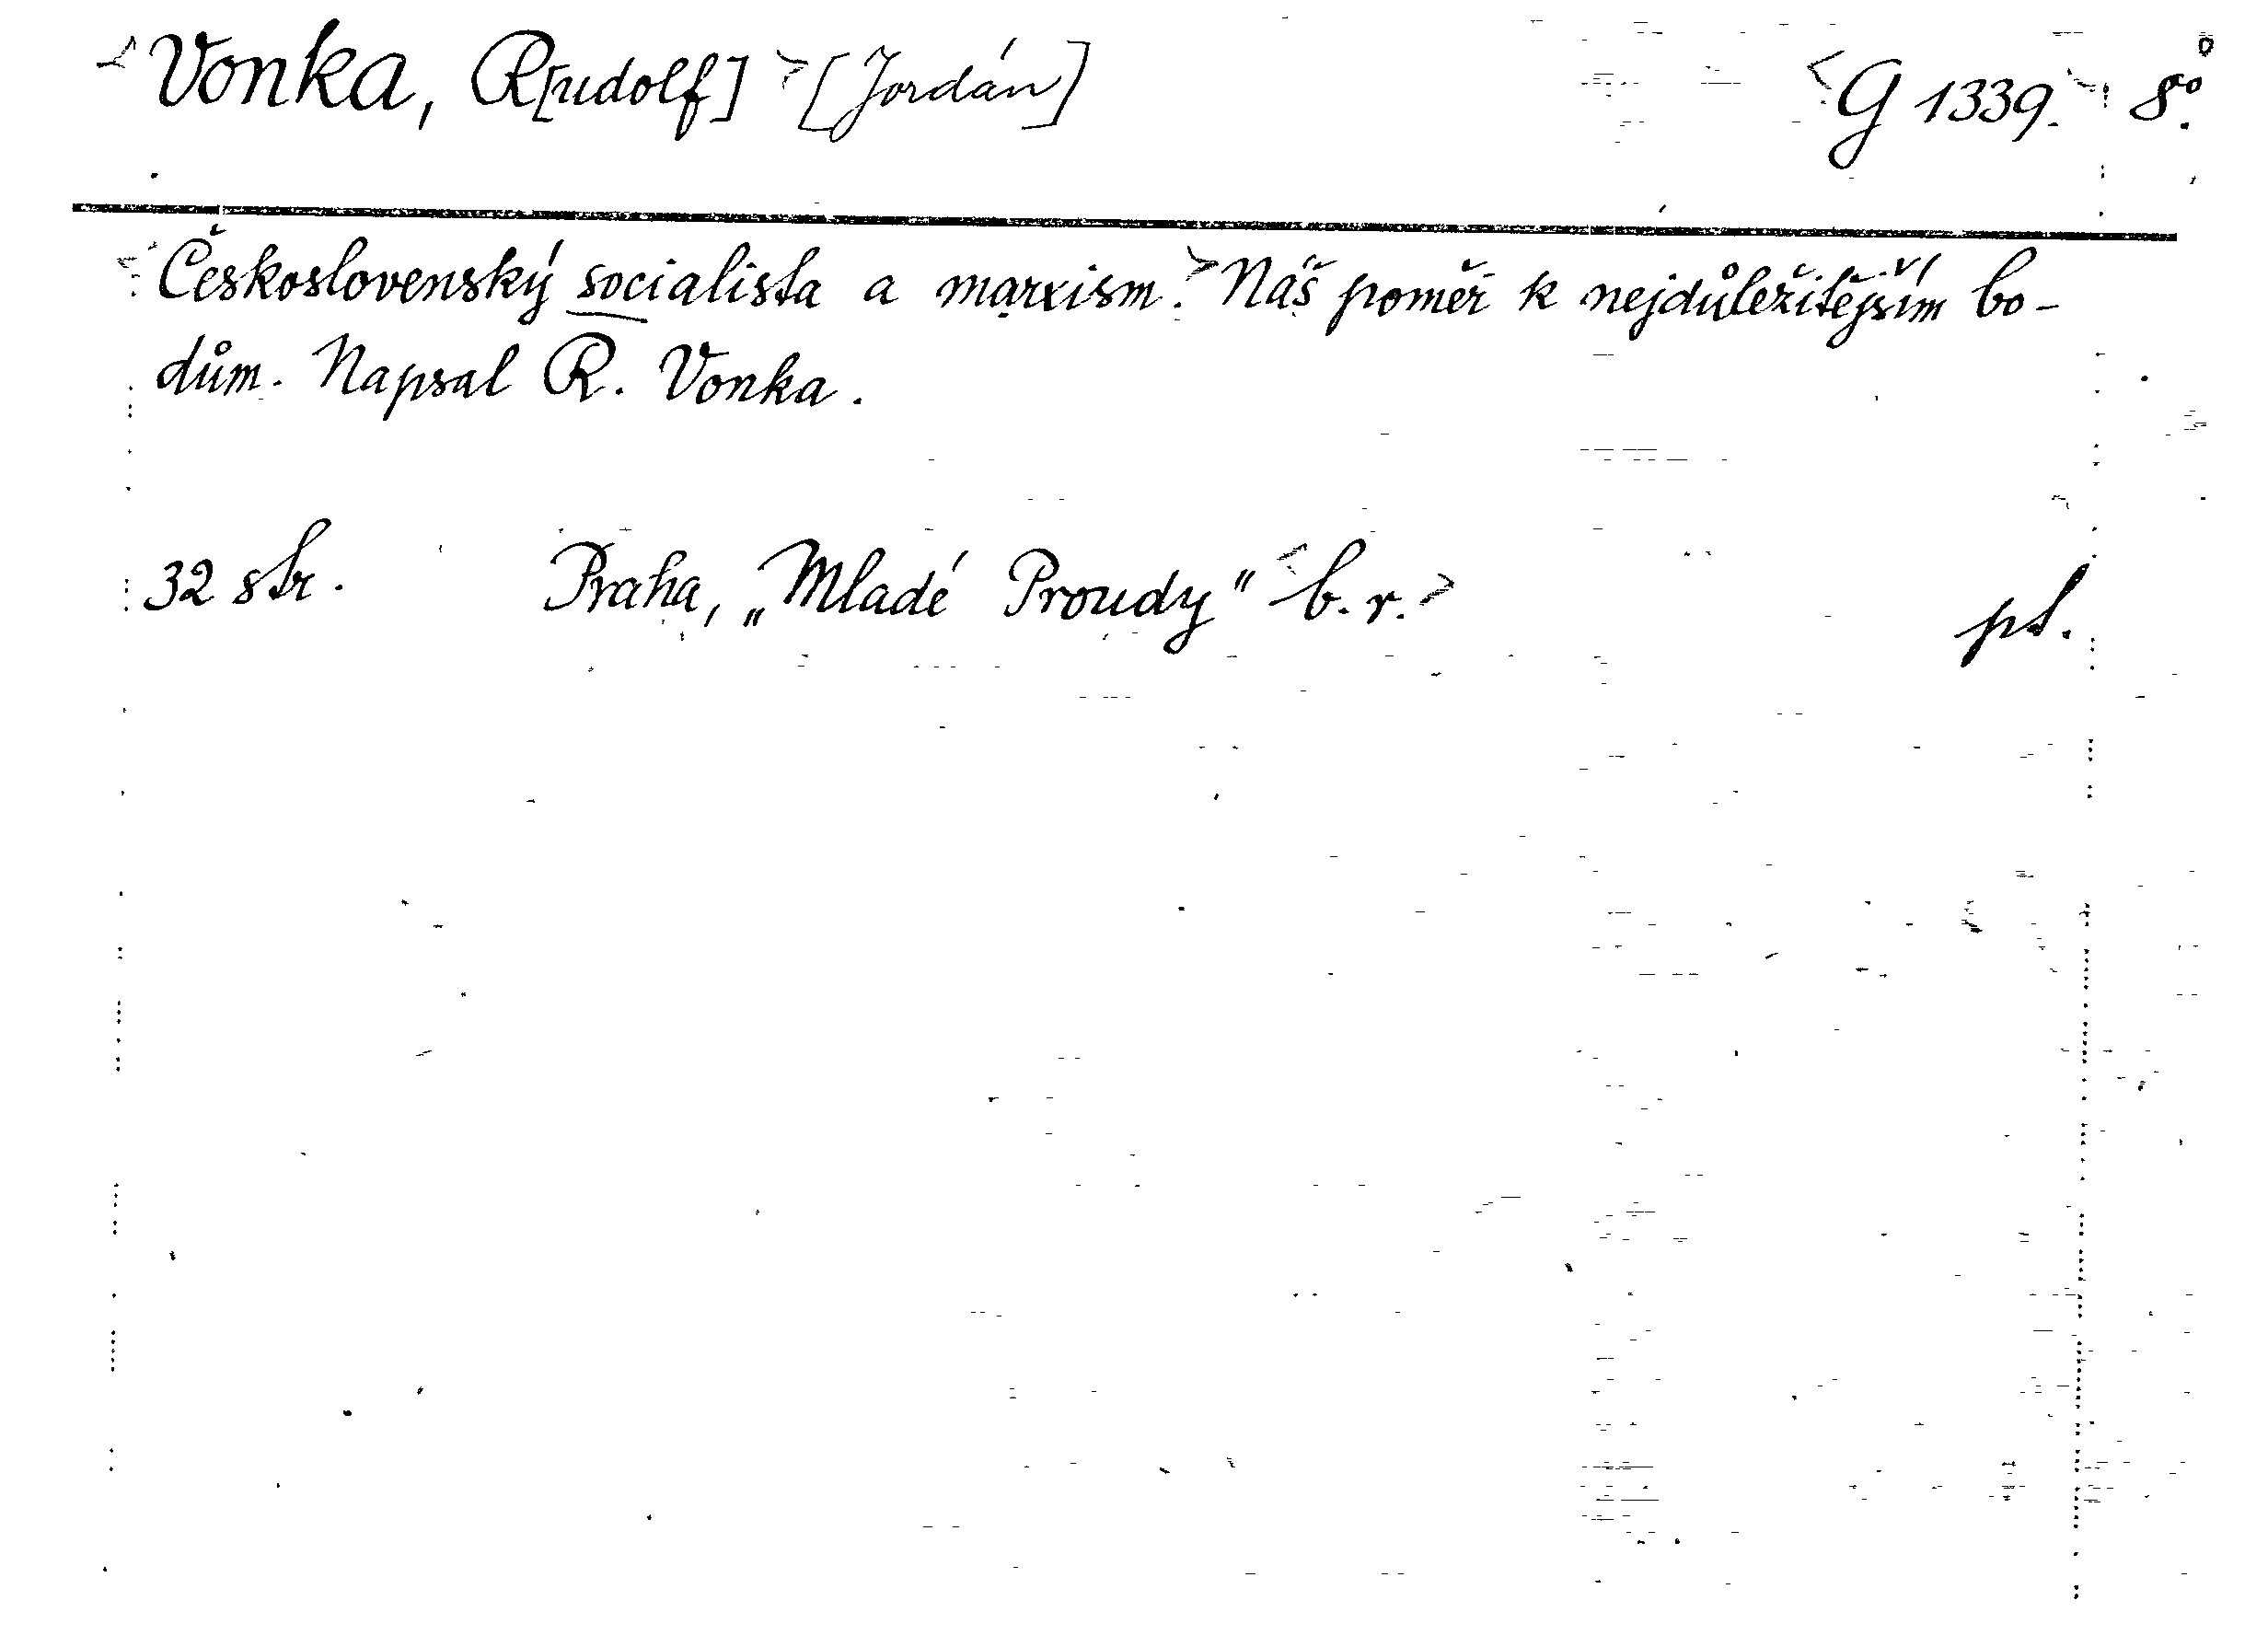 <Vonka, R[udolf]> [Jordán] <G 1339.> 8°.
<Československý socialista a marxism.> Náš poměr k nejdůležitějším bo-
dům. Napsal R. Vonka.
32 str. Praha, „Mladé Proudy" <b. r.> pt.